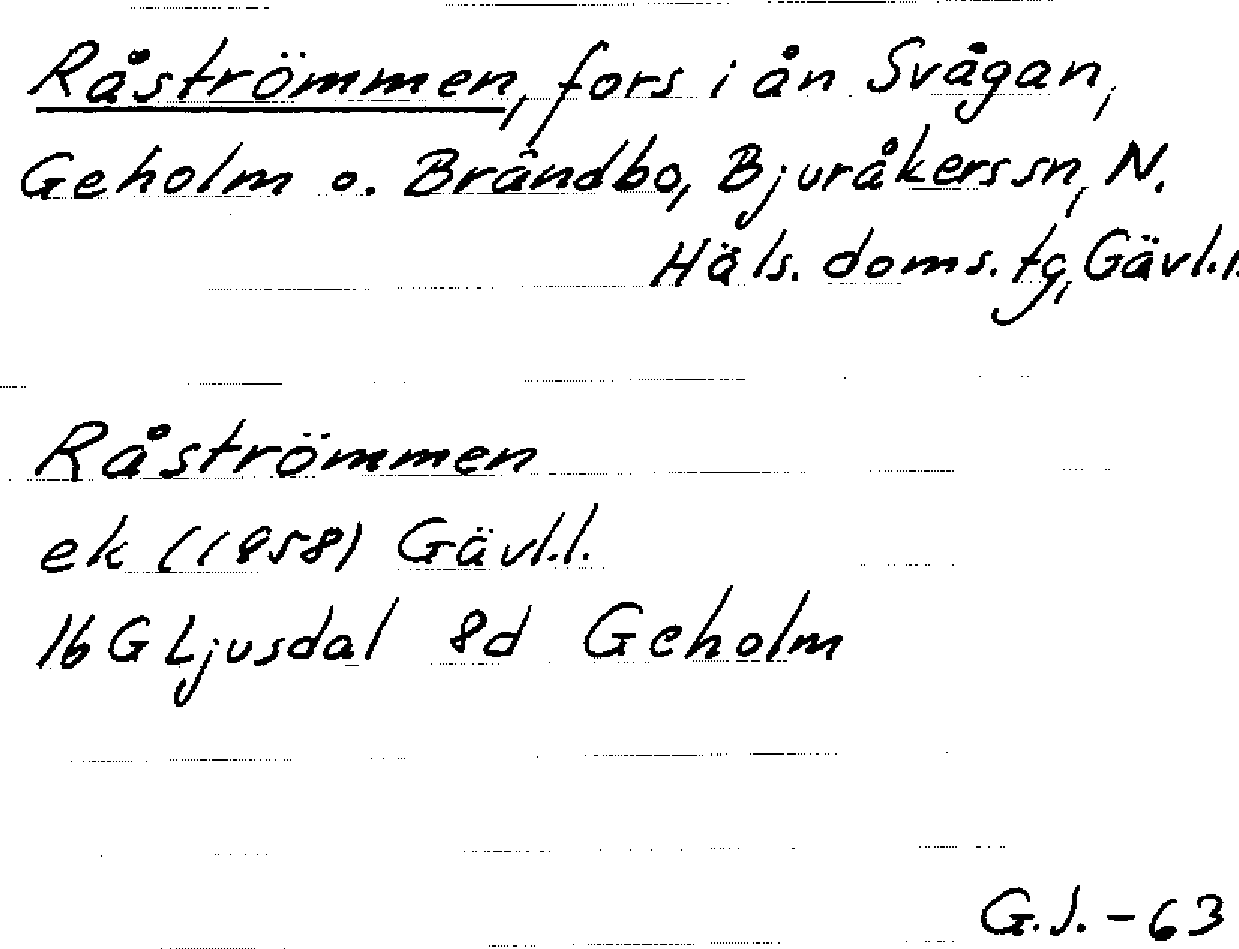 Råströmmen, fors i ån Svågan,
Geholm o. Brändbo, Bjuråkers sn, N.
Häls. doms. tg, Gävl.l.
Råströmmen
ek (1958) Gävl.l.
16 G Ljusdal 8d Geholm
G.J. - 63